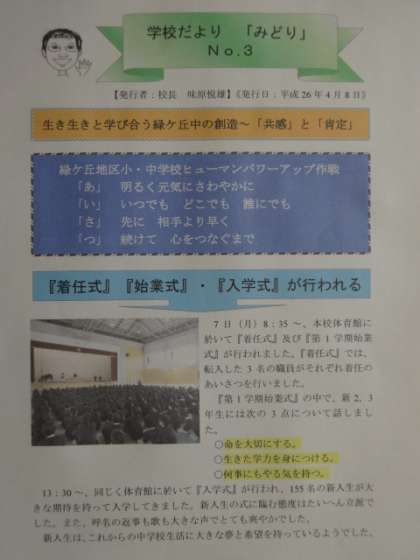 学校だより 「みどり」
No.3
【発行者：校長 味原悦雄】《発行日：平成26年4月8日》
生き生きと学び合う緑ケ丘中の創造～「共感」と「肯定」
緑ケ丘地区小・中学校ヒューマンパワーアップ作戦
「あ」 明るく元気にさわやかに
「い」 いつでも どこでも 誰にでも
「さ」 先に 相手より早く
「つ」 続けて 心をつなぐまで
『着任式』『始業式』・『入学式』が行われる
7日（月）8：35～、本校体育館に
於いて『着任式』及び『第1学期始業
式』が行われました。『着任式』では、
転入した3名の職員がそれぞれ着任の
あいさつを行いました。
『第1学期始業式』の中で、新2、3
年生には次の3点について話しまし
た。
○命を大切にする。
○生きた学力を身につける。
○何事にもやる気を持つ。
13：30～、同じく体育館に於いて『入学式』が行われ、155名の新入生が大
きな期待を持って入学してきました。新入生の式に臨む態度はたいへん立派で
した。また、呼名の返事も歌も大きな声でとても爽やかでした。
新入生は、これからの中学校生活に大きな夢と希望を持っているようでした、